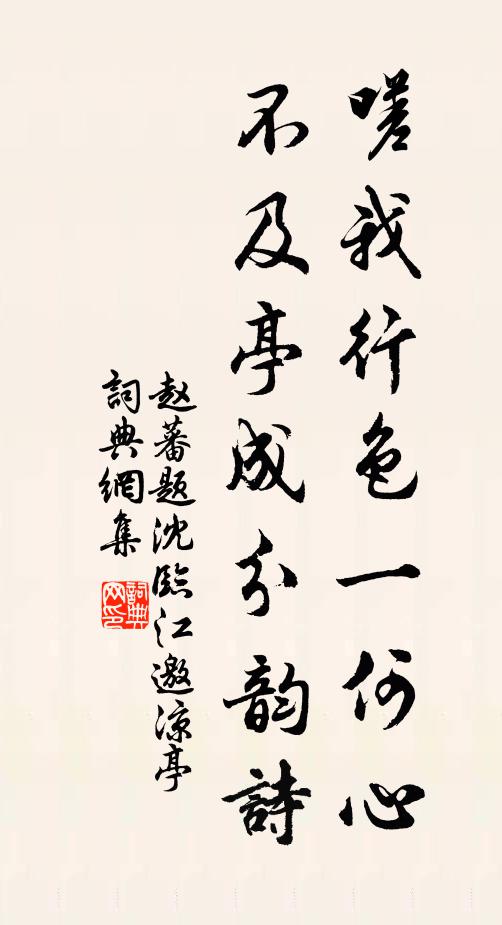 嗟我行色一何心
不及亭成分韵詩
赵蕃题沈臨江邀凉亭
詞典網集
詞典网印